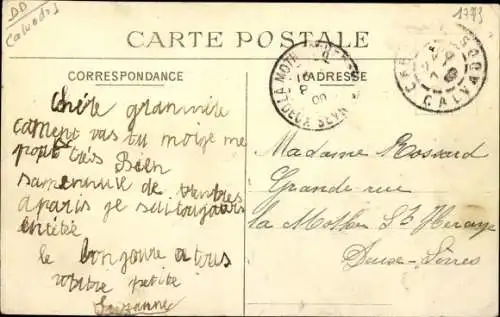 DD
Calvados
1793
CARTE POSTALE
CORRESPONDANCE
ADRESSE
LA MOTHE
DEUX SEVR
CALVADOS
Chére granmére
coment vas tu moije me
porte trés Bien
samennuie de
aparis je sui toujours
entétée
le bonjoure a tous
votre petite
Suzanne
Madame Rossard
Grande rue
la Mothe St Heraye
Deux-Sèvres